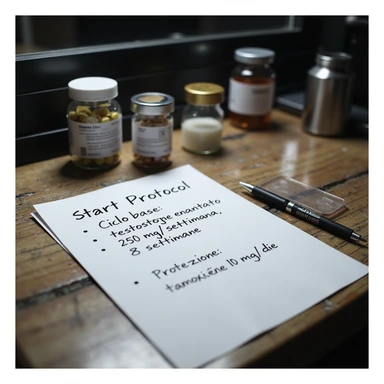 Start Protocol
Ciclo base:
• testostoge enantato
• 250 mg/settimana,
• 8 settimane
Protezione:
• tamoxiëne 10 mg/die